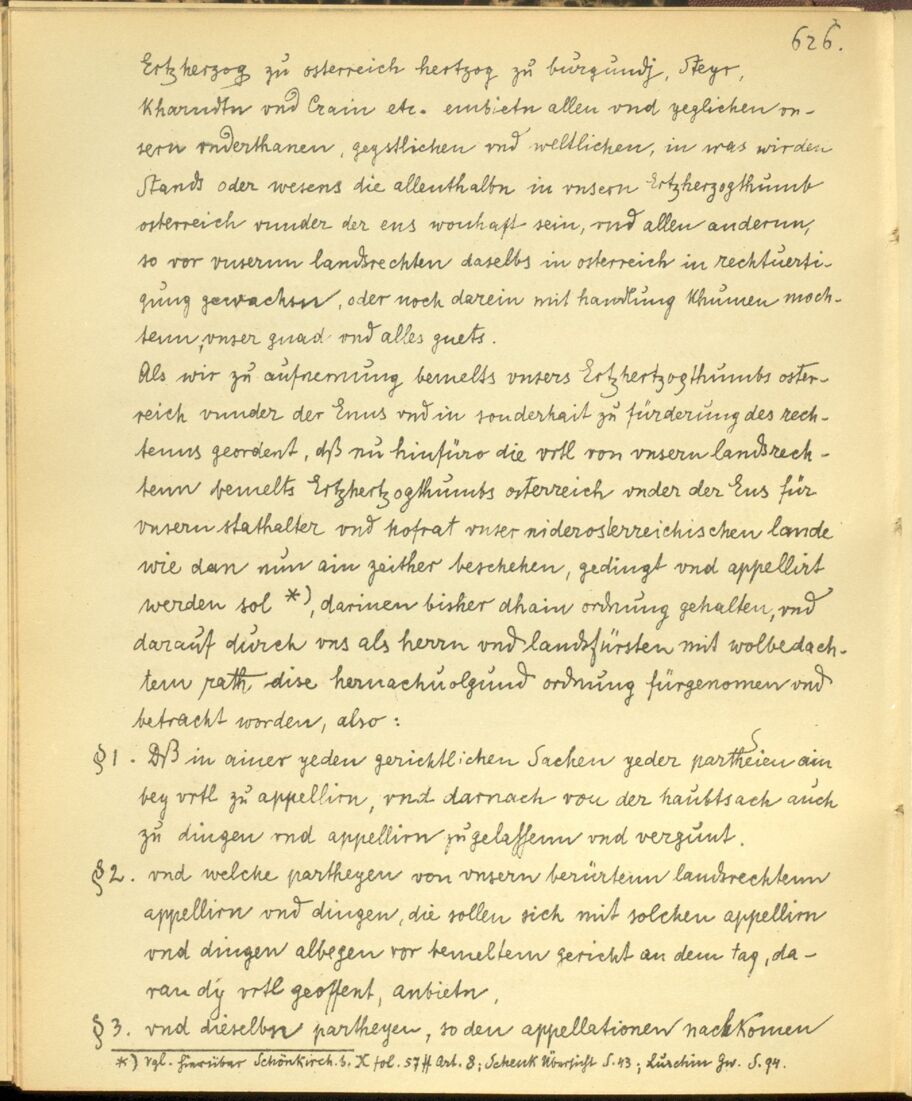 626.
Ertzherzog zu osterreich hertzog zu burgundj, Steyr,
Kharndtn vnd Crain etc. embietn allen vnd yeglichen vn-
sern vnderthanen, geystlichen vnd weltlichen, in was wirden
Stands oder wesens die allenthalbn in vnsern Ertzherzogthumb
osterreich vnnder der ens wonhaft sein, vnd allen andernn,
so vor vnnsernn landsrechten daselbs in osterreich in rechtuerti-
gung gewachsn, oder noch darein mit handlung khumen moch-
tenn, vnser gnad vnd alles guets.
Als wir zu aufnemung bemelts vnsers Ertzhertzogthumbs oster-
reich vnnder der Enns vnd in sonderhait zu fürderung des rech-
tenns geordent, dß nu hinfüro die vrtl von vnsern landsrech-
tenn bemelts Ertzhertzogthumbs osterreich vnder der Ens für
vnsern stathalter vnd hofrat vnser niderosterreichischen lande
wie dan nun ain zeither beschehen, gedingt vnd appellirt
werden sol *), darinen bisher dhain ordnung gehalten, vnd
darauf durch vns als herrn vnd landsfürsten mit wolbedach-
tem rath dise hernachuolgund ordnung fürgenomen vnd
betracht worden, also:
§ 1. Dß in ainer yeden gerichtlichen Sachen yeder partheien ain
bey vrtl zu appellirn, vnd darnach von der haubtsach auch
zu dingen vnd appellirn zugelassenn vnd vergunt.
§ 2. vnd welche partheyen von vnsern berürtenn landsrechtenn
appellirn vnd dingen, die sollen sich mit solchen appellirn
vnd dingen albegen vor bemeltem gericht an dem tag, da-
ran dy vrtl geoffent, anbietn,
§ 3. vnd dieselbn partheyen, so den appellationen nachkomen
*) Vgl. hierüber Schönkirch. b. X fol. 57 ff Art. 8; Schenk Übersicht S. 43; Luschin Gw. S. 94.